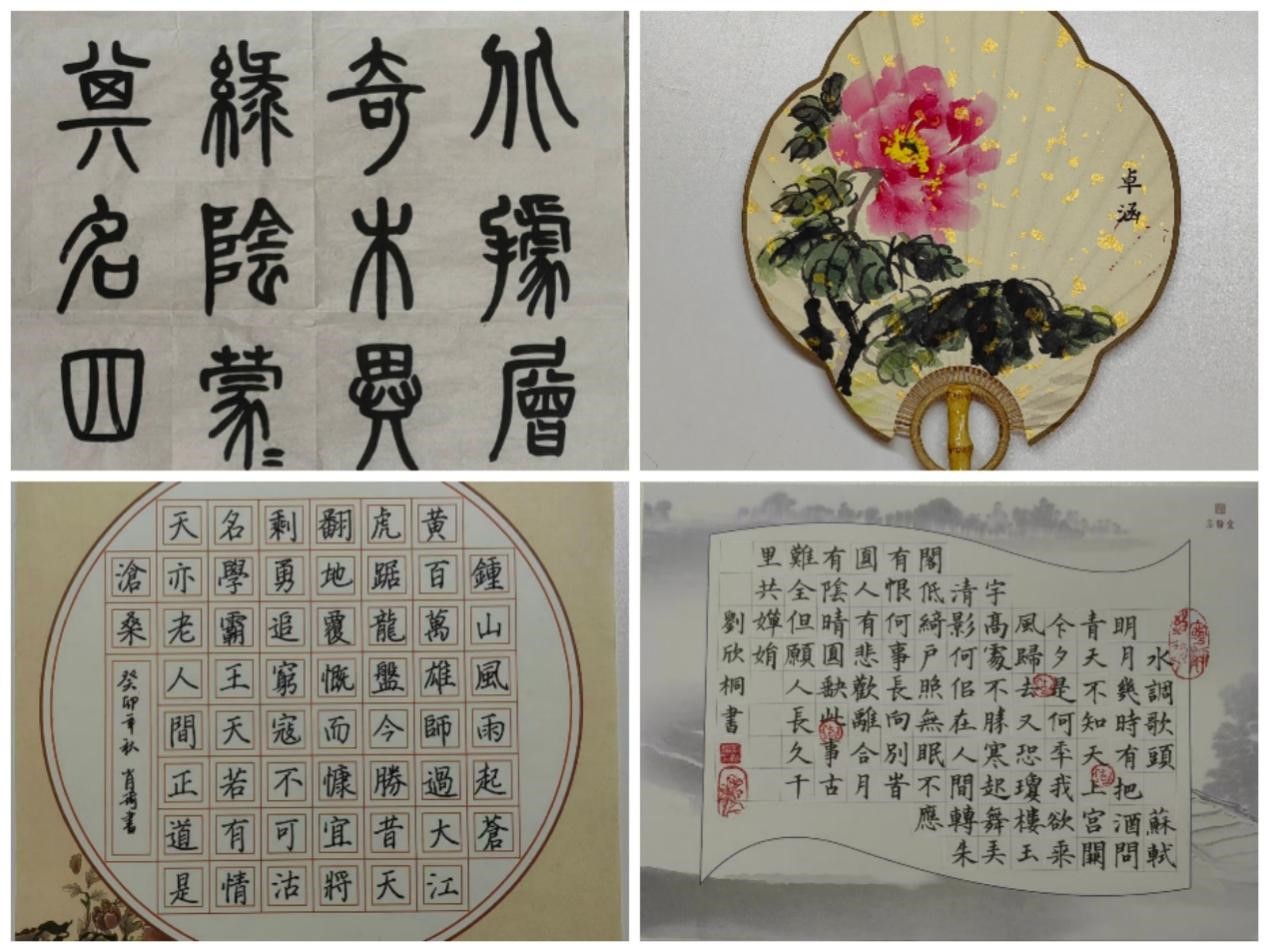 據層
奇木異
綠陰蒙
名四
卓涵
鍾山風雨起蒼
黃百萬雄師過大江
虎踞龍盤今勝昔天
翻地覆慨而慷宜將
剩勇追窮寇不可沽
名學霸王天若有情
天亦老人間正道是
滄桑
癸卯年秋 肖書
水調歌頭 蘇軾
明月幾時有把酒問
青天不知天上宮闕
今夕是何年我欲乘
風歸去又恐瓊樓玉
宇高處不勝寒起舞弄
清影何侶在人間轉朱
閣低綺戶照無眠不應
有恨何事長向別旹
圓人有悲歡離合月
有陰晴圓缺此事古
難全但願人長久千
里共嬋娟
劉欣桐書